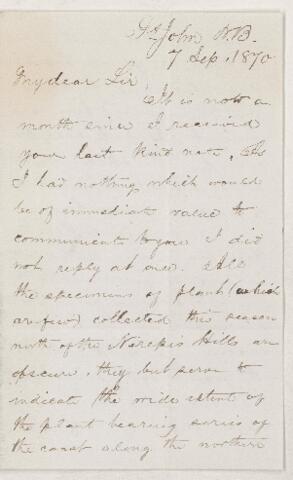 St John N.B.
7 Sep. 1870
My dear Sir
It is now a
month since I received
your last kind note. As
I had nothing which would
be of immediate value to
communicate to you I did
not reply at once. All
the specimens of plants (which
are few) collected this season
north of the Nerepis Hills are
obscure, they but serve to
indicate the wide extent of
the plant bearing series of
the coast along the northern